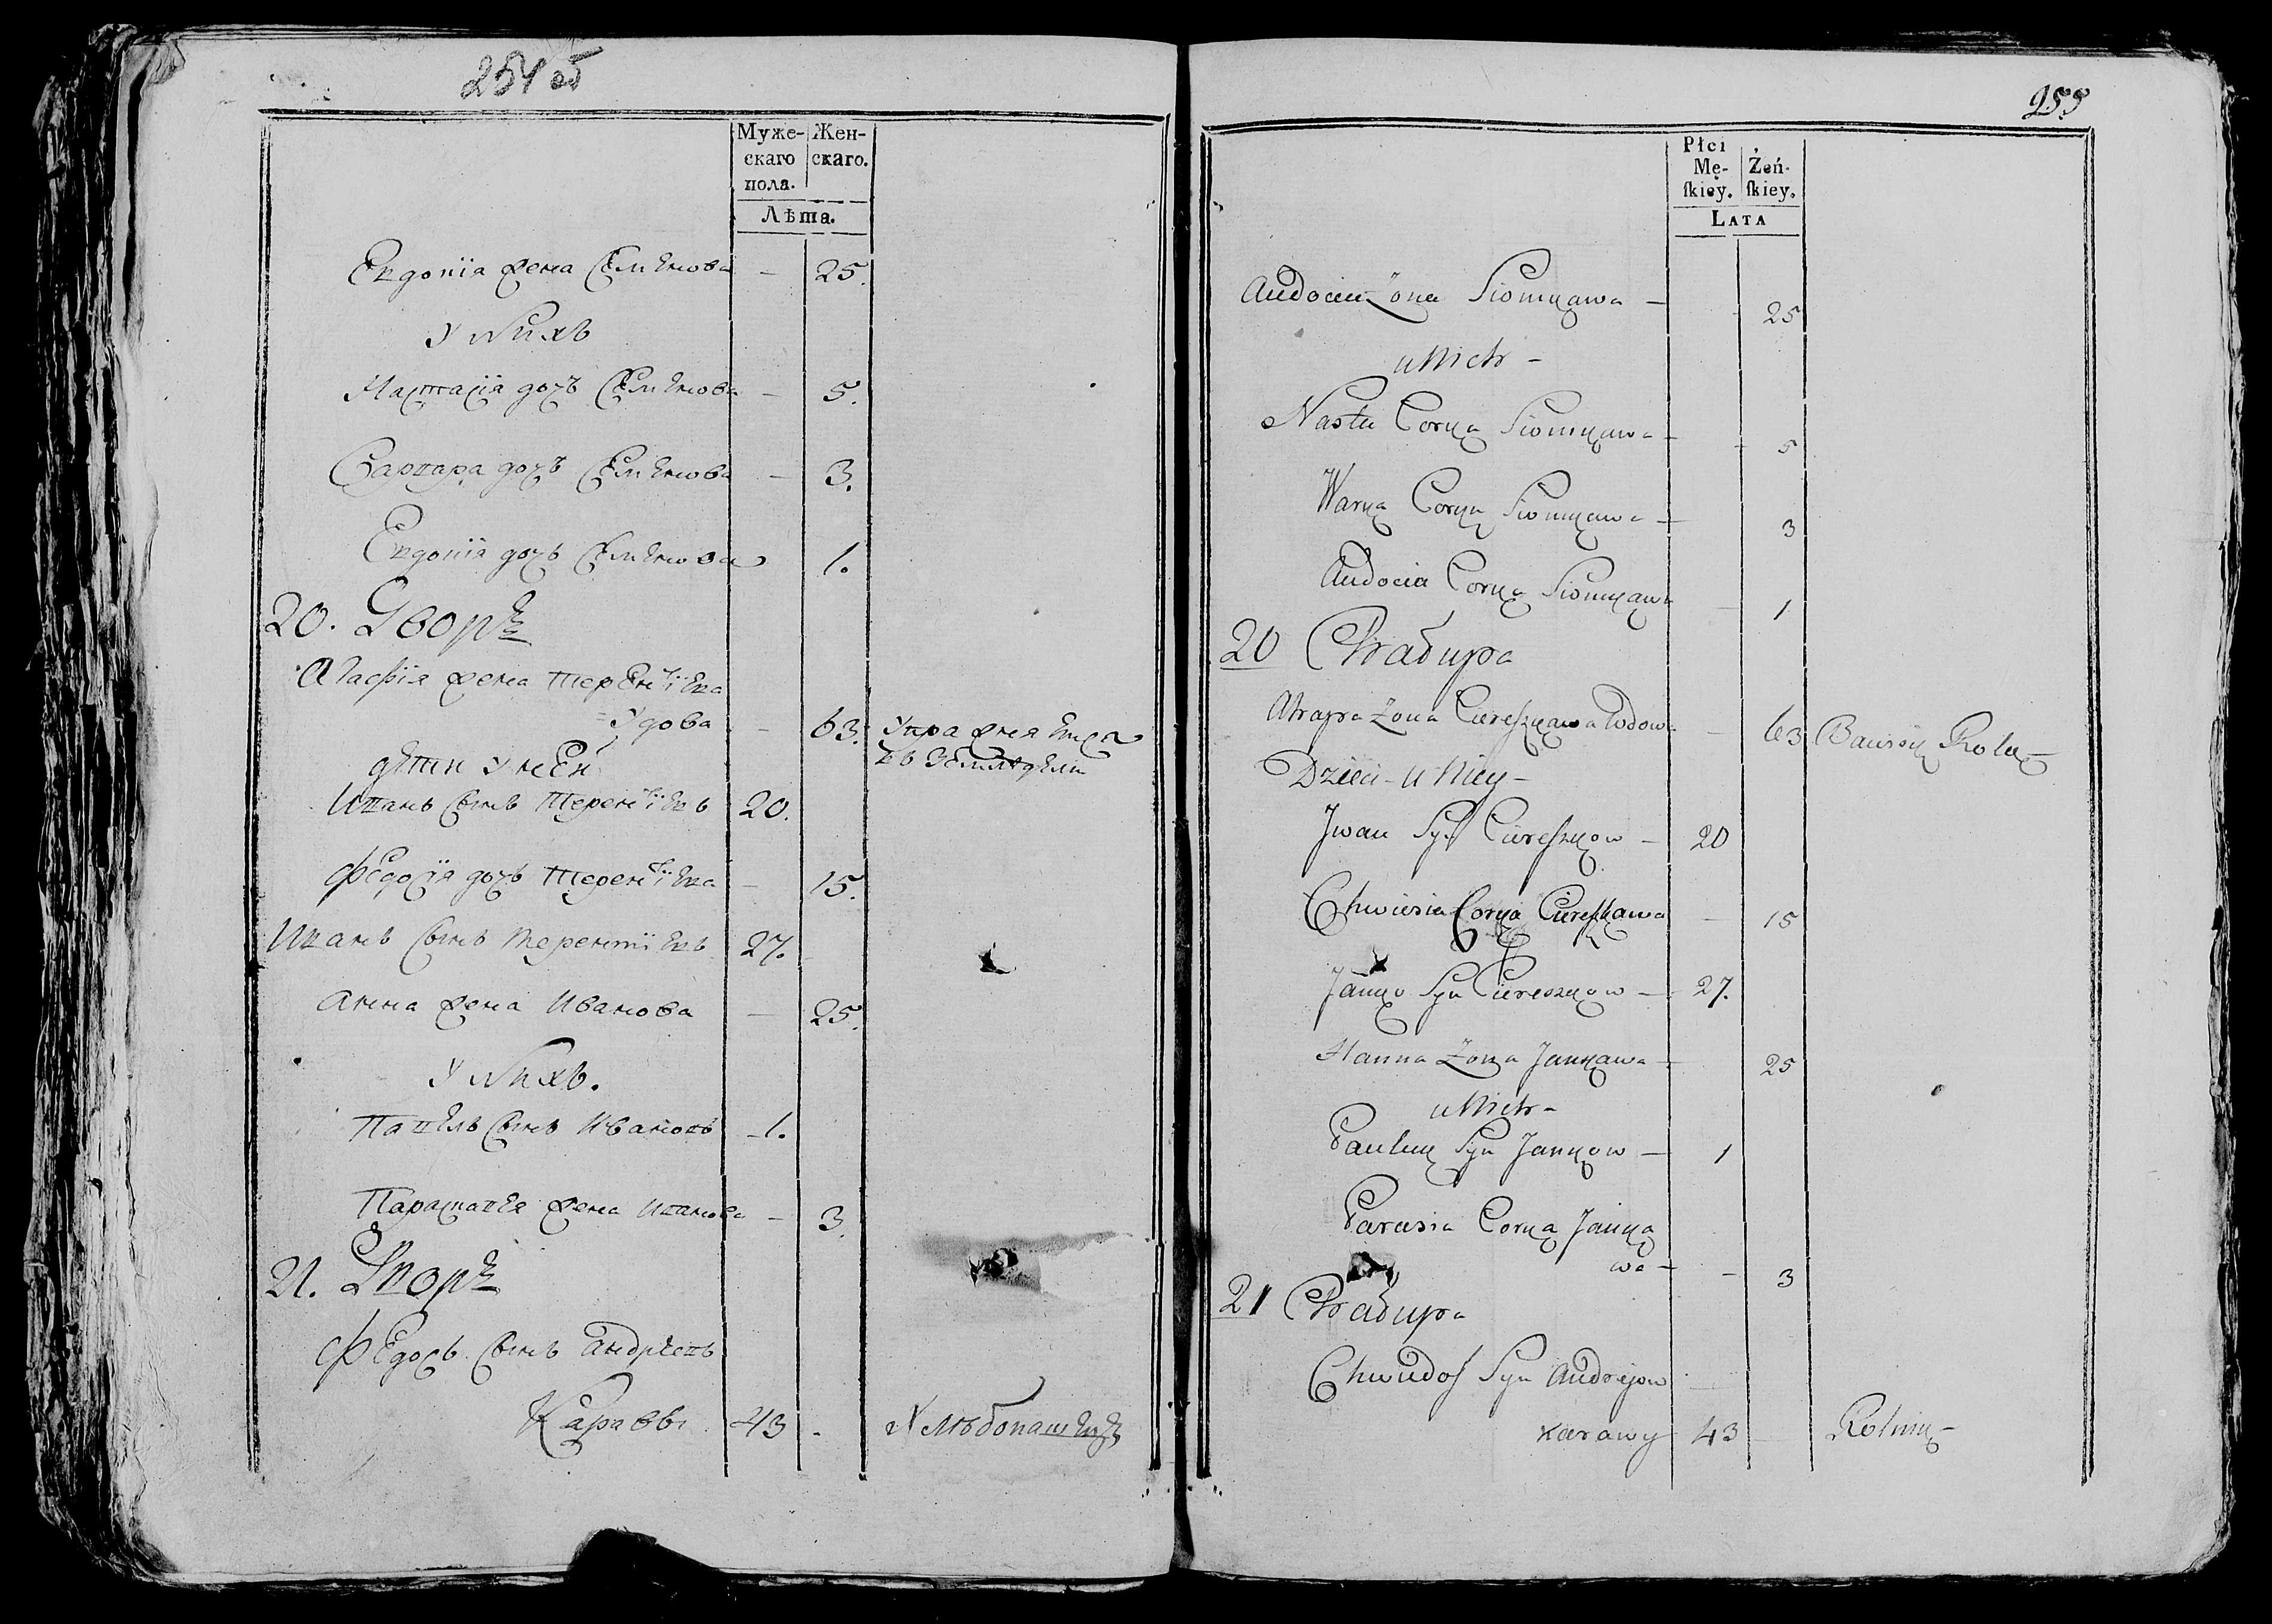 254 об
Муже-
скаго
пола.
Жен-
скаго.
Лѣта.
Евдокія жена Семенова — 25.
У нихъ
Настасія дочь Семенова — 5.
Варвара дочь Семенова — 3.
Евдокія дочь Семенова 1.
20. Дворъ
Агафія жена Терентіева
удова — 63. Упражняется
въ земледелии
дети у неей
Иванъ сынъ Терентіевъ 20.
Федосія дочь Терентіева — 15.
Иванъ сынъ Терентіевъ 27.
Анна жена Иванова — 25.
У нихъ.
Павелъ сынъ Ивановъ 1.
Парасковея жена Иванова — 3.
21. Дворъ
Федосъ сынъ Андреевъ
Каравы 43 - Хлѣбопашецъ
255
Płci
Mę-
ſkiey.
Żeń-
ſkiey.
Lata
Audocia Żona Siomkawa — 25
u Nich —
Nasta Corka Siomkawa — 5
Warka Corka Siomkawa — 3
Audocia Corka Siomkawa — 1
20 Chałupa
Ahapa Żona Cireszkawa Wdowa — 63 Bawiąca Rolą —
Dzieci u Niey —
Jwan Syn Cireszkow — 20
Chwiesia Corka Cireszkawa — 15
Janko Syn Cireszkow — 27.
Hanna Żona Jankawa — 25
u Nich —
Pauluk Syn Jankow — 1
Parasia Corka Janka
wa — — 3
21 Chałupa
Chwiedoſ Syn Andrejow
Karawy 43 — Rolnik —